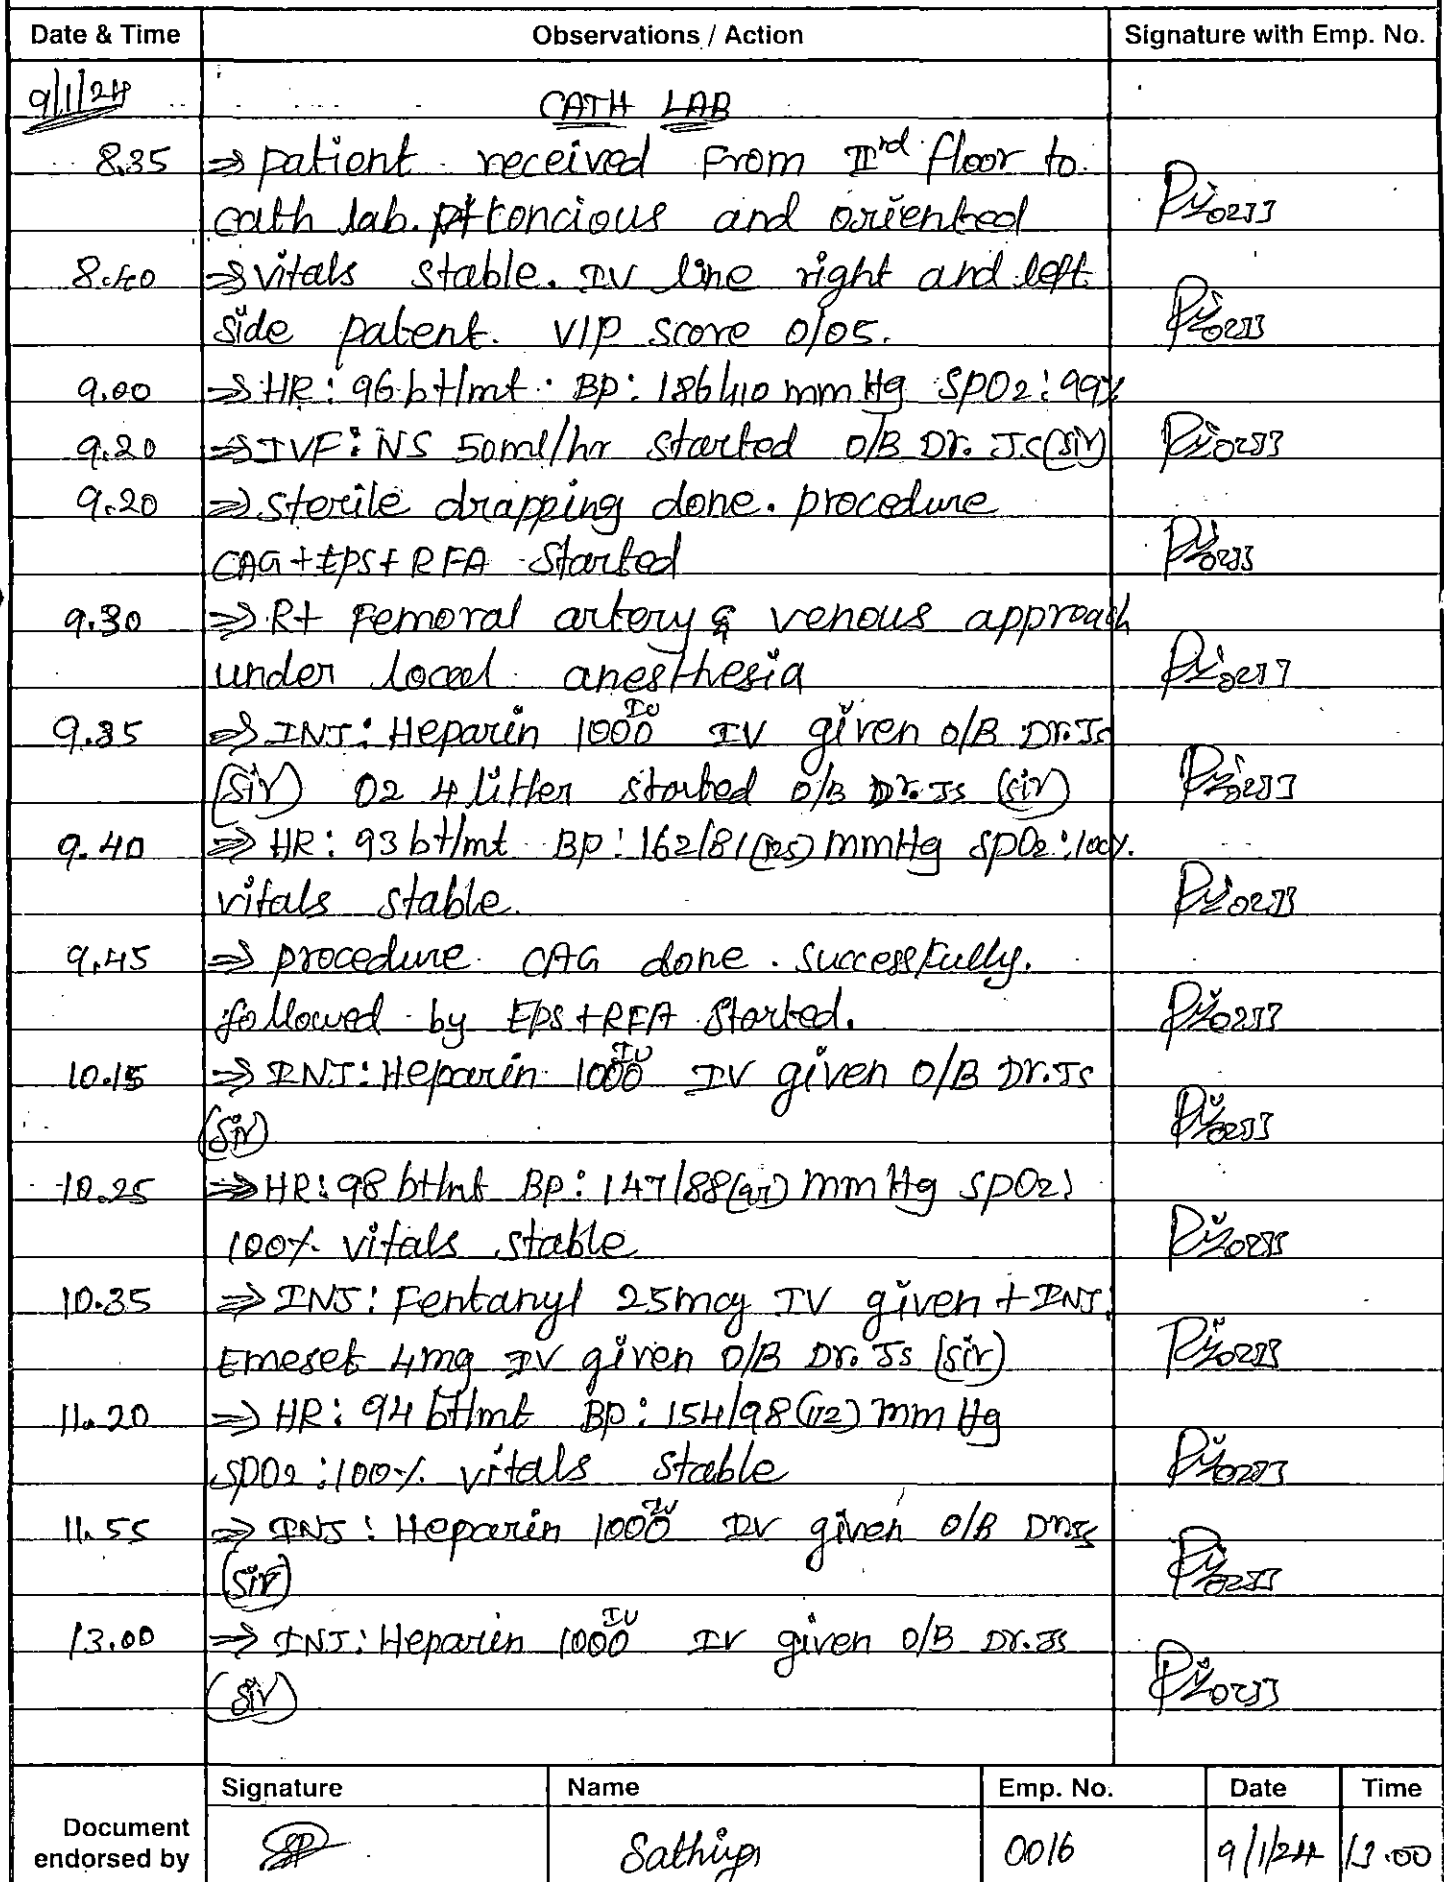 Date & Time Observations / Action Signature with Emp. No.
9/1/24 CATH LAB
8.35 ⇒ patient received From IIrd floor to
cath lab. pt concious and oriented
8.40 ⇒ vitals stable. IV line right and left
side patent. VIP score 0/05.
9.00 ⇒ HR: 96 bt/mt. BP: 186/110 mmHg SPO2: 99%
9.20 ⇒ IVF: NS 50ml/hr started O/B Dr. Js (sir)
9.20 ⇒ sterile drapping done. procedure
CAG + EPS + RFA Started
9.30 ⇒ Rt Femoral artery & venous approach
under local anesthesia
9.35 ⇒ INJ: Heparin 1000 IU IV given O/B Dr. Js
(sir) O2 4 litter started O/B Dr. Js (sir)
9.40 ⇒ HR: 93 bt/mt BP: 162/81 mmHg SpO2: 100%.
vitals stable.
9.45 ⇒ procedure CAG done. successfully.
followed by EPS + RFA Started.
10.15 ⇒ INJ: Heparin 1000 IU IV given O/B Dr. Js
(sir)
10.25 ⇒ HR: 98 bt/mt BP: 147/88 mmHg SPO2:
100% vitals stable
10.35 ⇒ INJ: Fentanyl 25mcg IV given + INJ:
Emeset 4mg IV given O/B Dr. Js (sir)
11.20 ⇒ HR: 94 bt/mt BP: 154/98 (112) mmHg
SPO2: 100% vitals stable
11.55 ⇒ INJ: Heparin 1000 IU IV given O/B Dr. Js
(sir)
13.00 ⇒ INJ: Heparin 1000 IU IV given O/B Dr. Js
(sir)
Signature Name Emp. No. Date Time
Document
endorsed by 0016 9/1/24 13.00